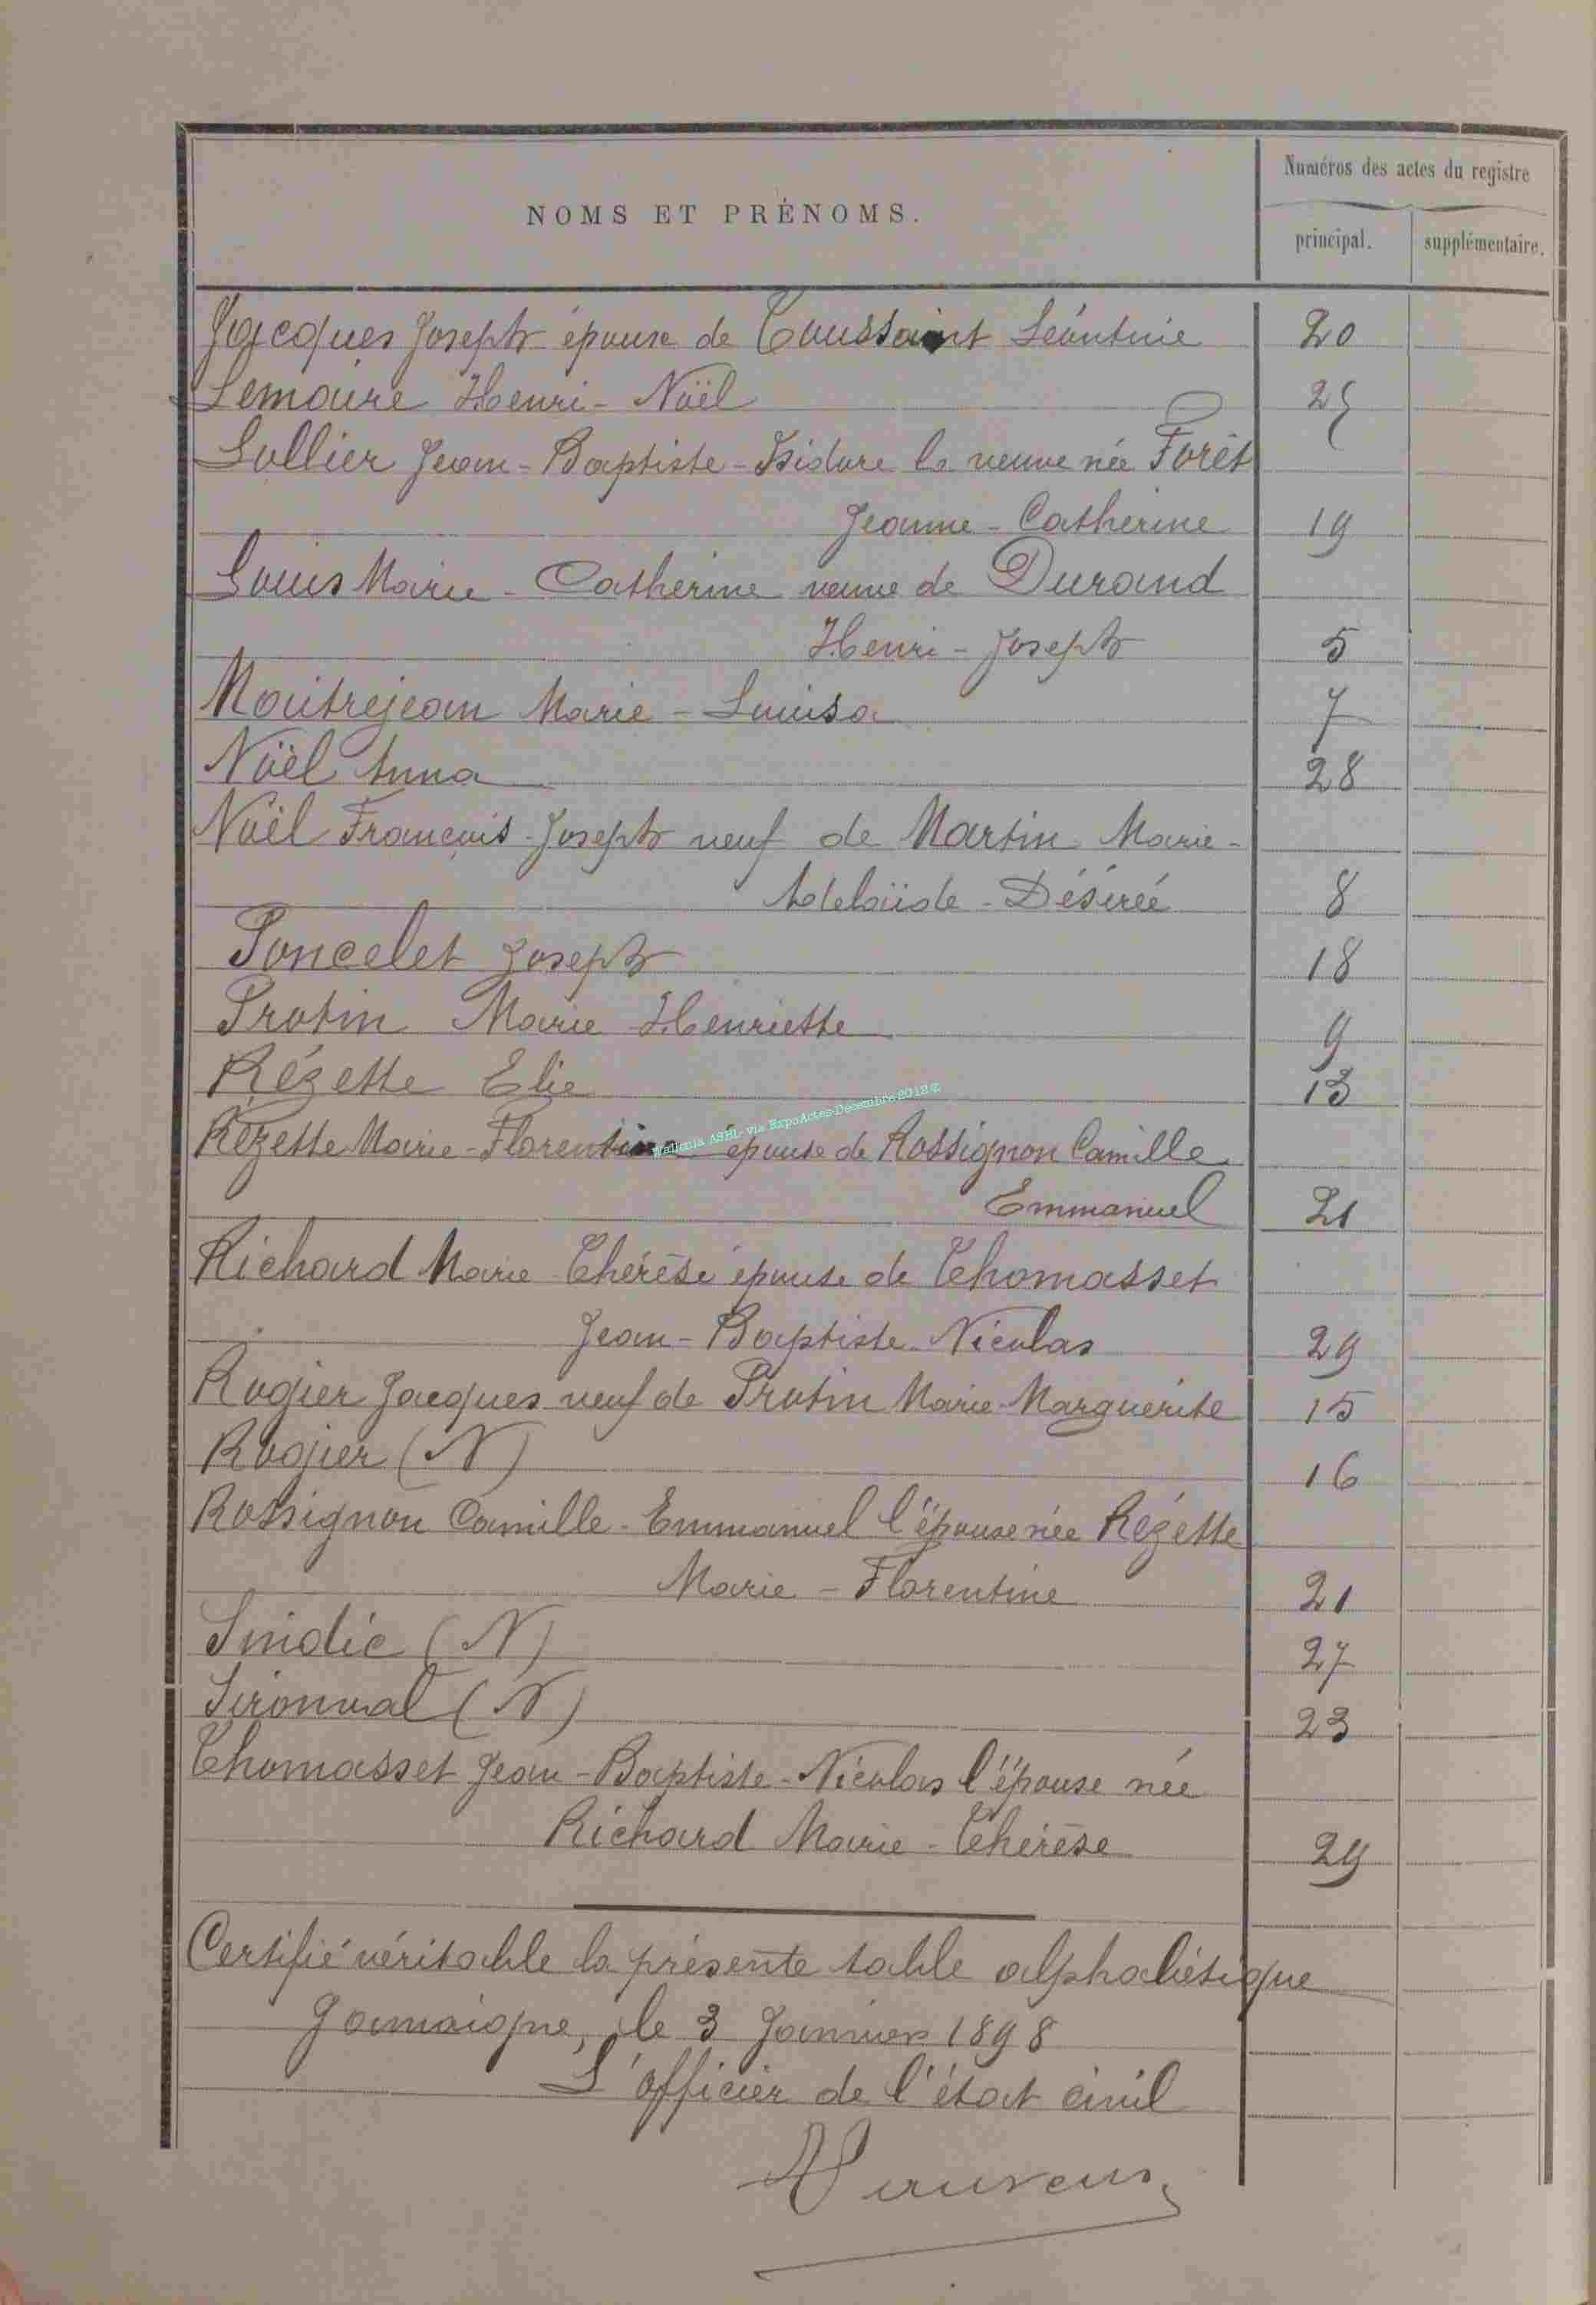 Numéros des actes du registre
NOMS ET PRÉNOMS.
principal. supplémentaire.
Jacques Joseph épouse de Toussaint Léontine 20
Lemaire Henri - Noël 25
Lollier Jean - Baptiste - Isidore la veuve née Forêt
Jeanne - Catherine 19
Louis Marie - Catherine veuve de Durand
Henri - Joseph 5
Maitrejean Marie - Louisa 7
Noël Anna 28
Noël François - Joseph veuf de Martin Marie -
Adelaïde - Désirée 8
Poncelet Joseph 18
Protin Marie Henriette 9
Rézette Elie 13
Wallonia ASBL - via ExpoActes-Décembre 2012
Rézette Marie - Florentine épouse de Rossignon Camille
Emmanuel 21
Richard Marie Thérèse épouse de Thomasset
Jean - Baptiste - Nicolas 29
Rogier Jacques veuf de Protin Marie - Marguerite 15
Rogier (N) 16
Rossignon Camille - Emmanuel l'épouse née Rézette
Marie - Florentine 21
Sindic (N) 27
Sironval (N) 23
Thomasset Jean - Baptiste - Nicolas l'épouse née
Richard Marie - Thérèse 29
Certifié véritable la présente table alphabétique
Jamoigne, le 3 Janvier 1898
L'officier de l'état civil